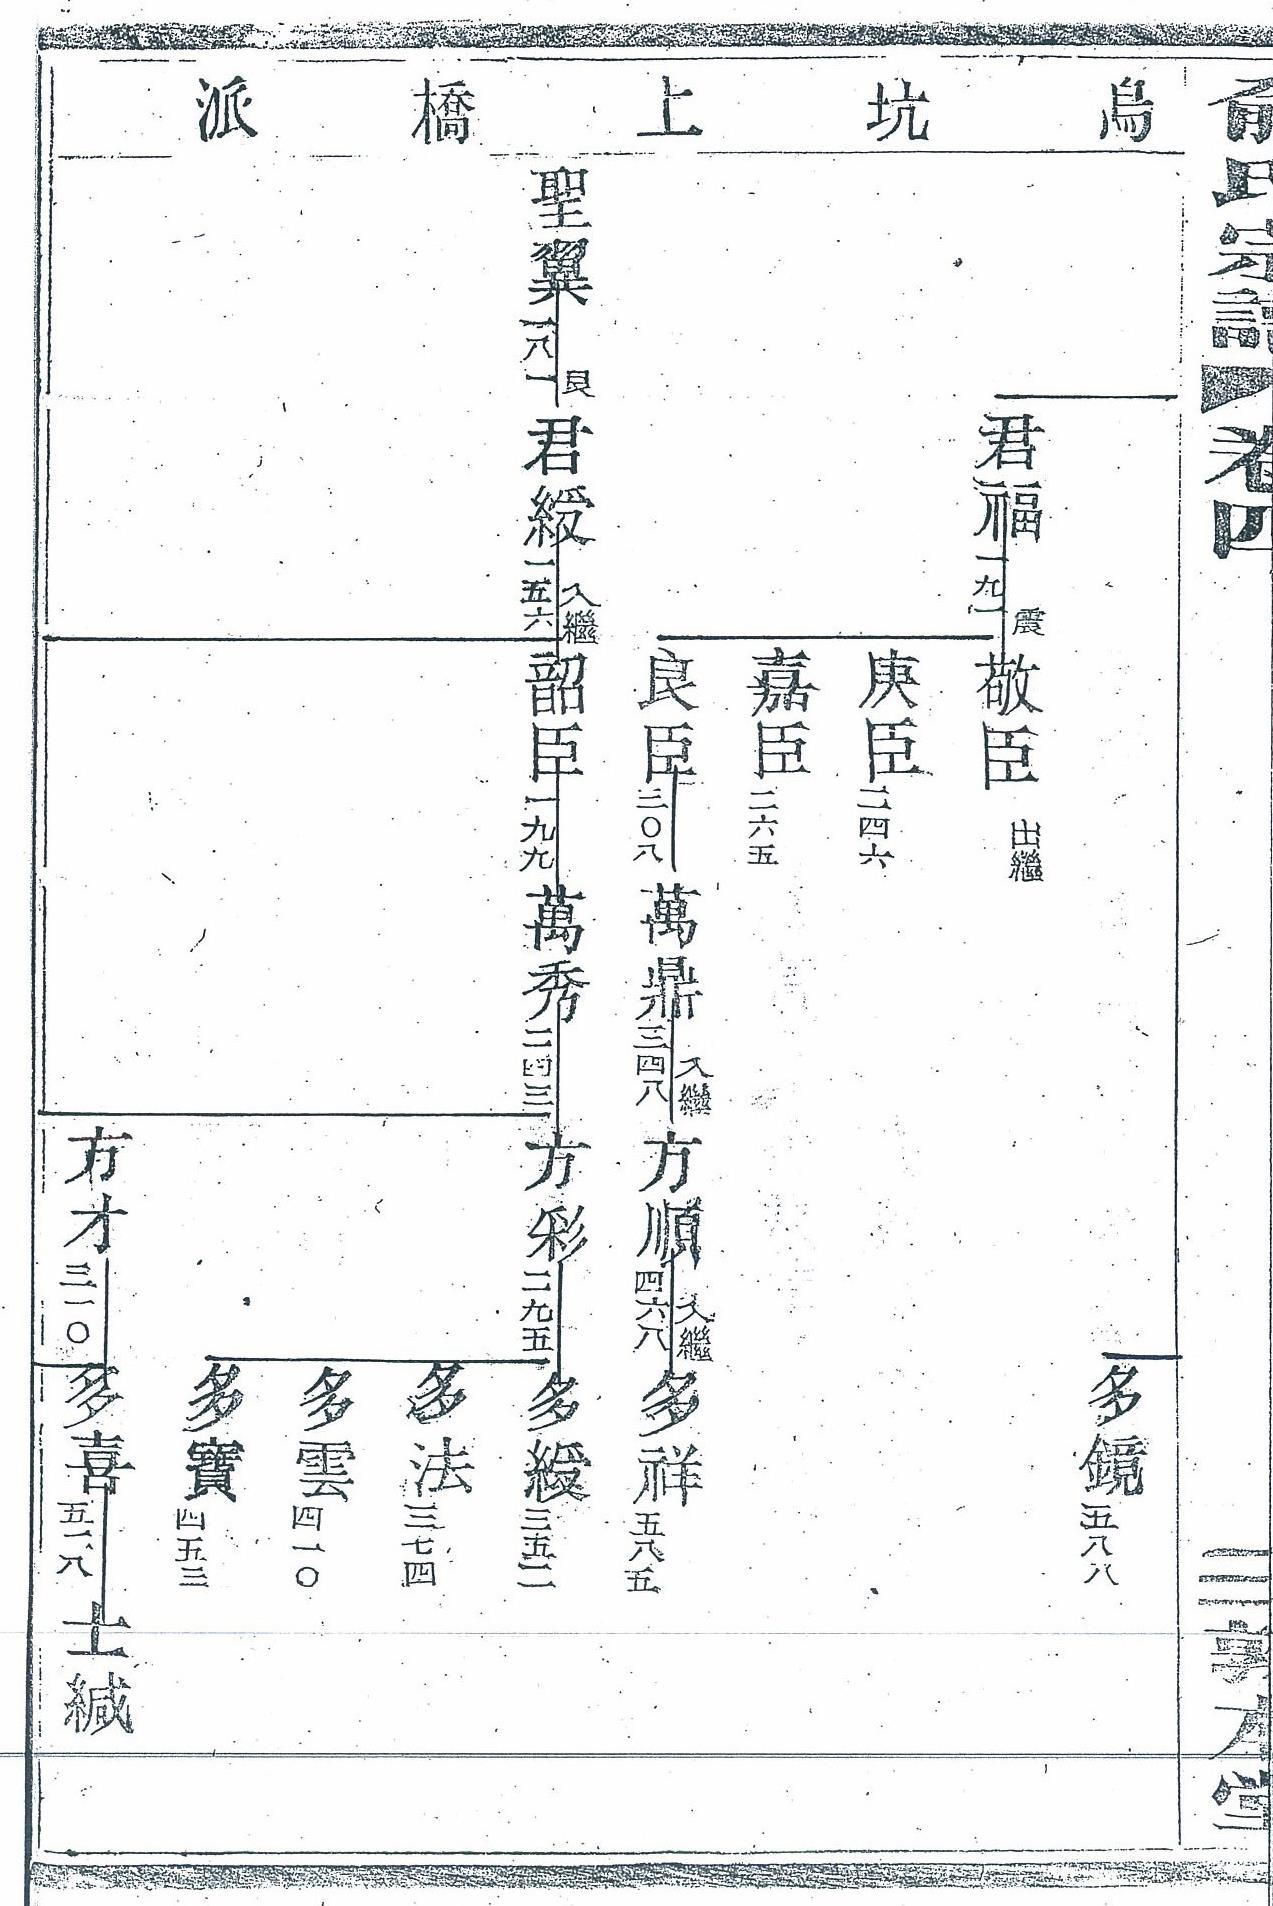 俞氏宗譜 卷四
三 敦本堂
烏坑上橋派
多鏡 五八八
君福 一九一 震
敬臣 出繼
庚臣 二四六
嘉臣 二六五
良臣 三〇八
萬鼎 三四八 入繼
方順 四六八 入繼
多祥 五八五
聖翼 一八一 艮
君綬 一五六 入繼
韶臣 一九九
萬秀 二四三
方彩 二九五
多綬 三五二
多法 三七四
多雲 四一〇
多寶 四五三
方才 三一〇
多喜 五一八
士緘